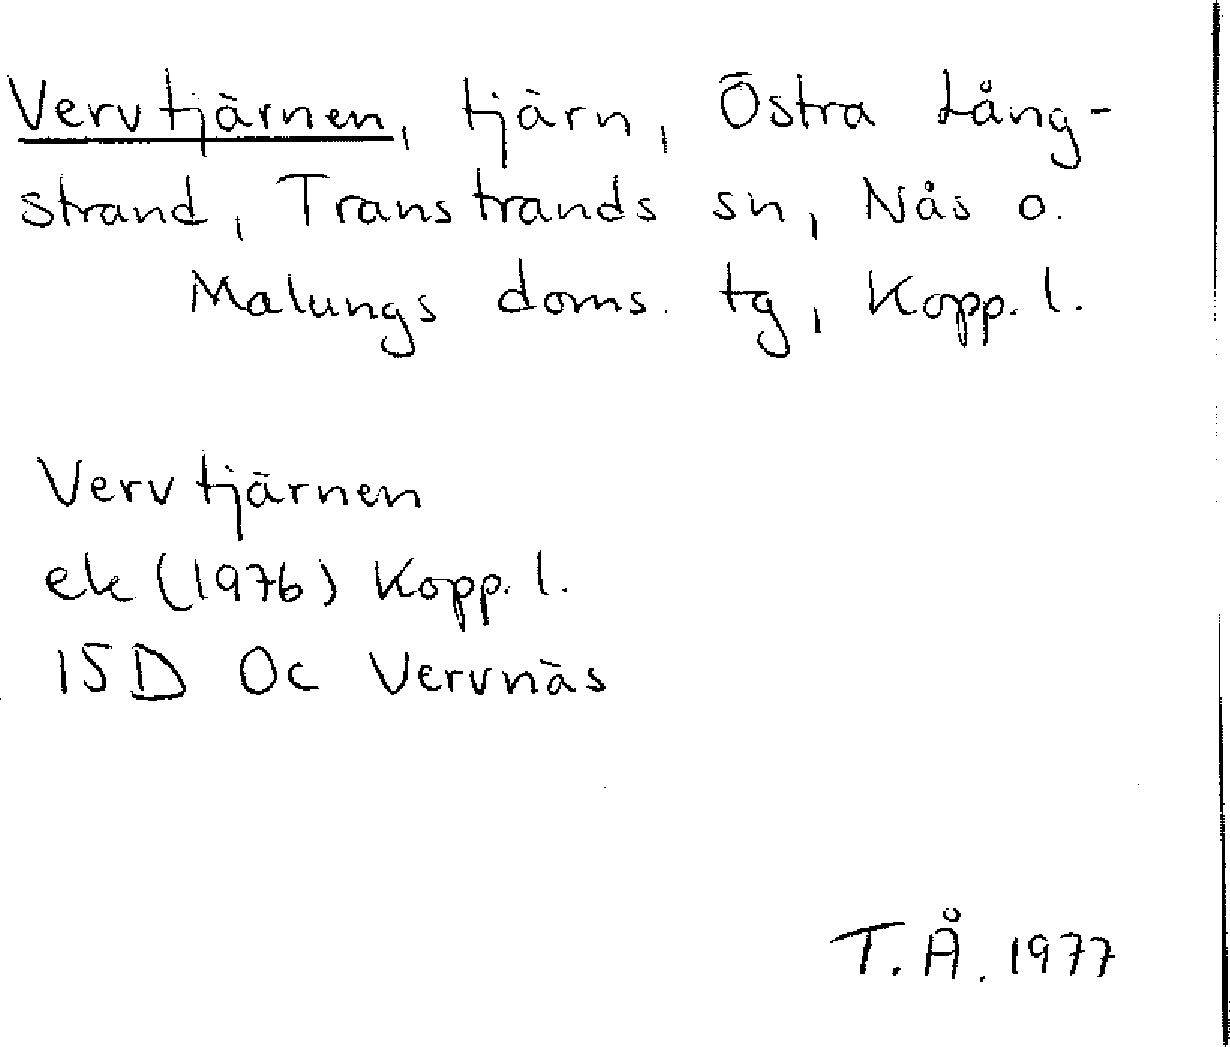 Vervtjärnen, tjärn, Östra Lång-
strand, Transtrands sn, Nås o.
Malungs doms. tg, Kopp. l.
Vervtjärnen
ek (1976) Kopp. l.
15D 0c Vervnäs
T. Å. 1977